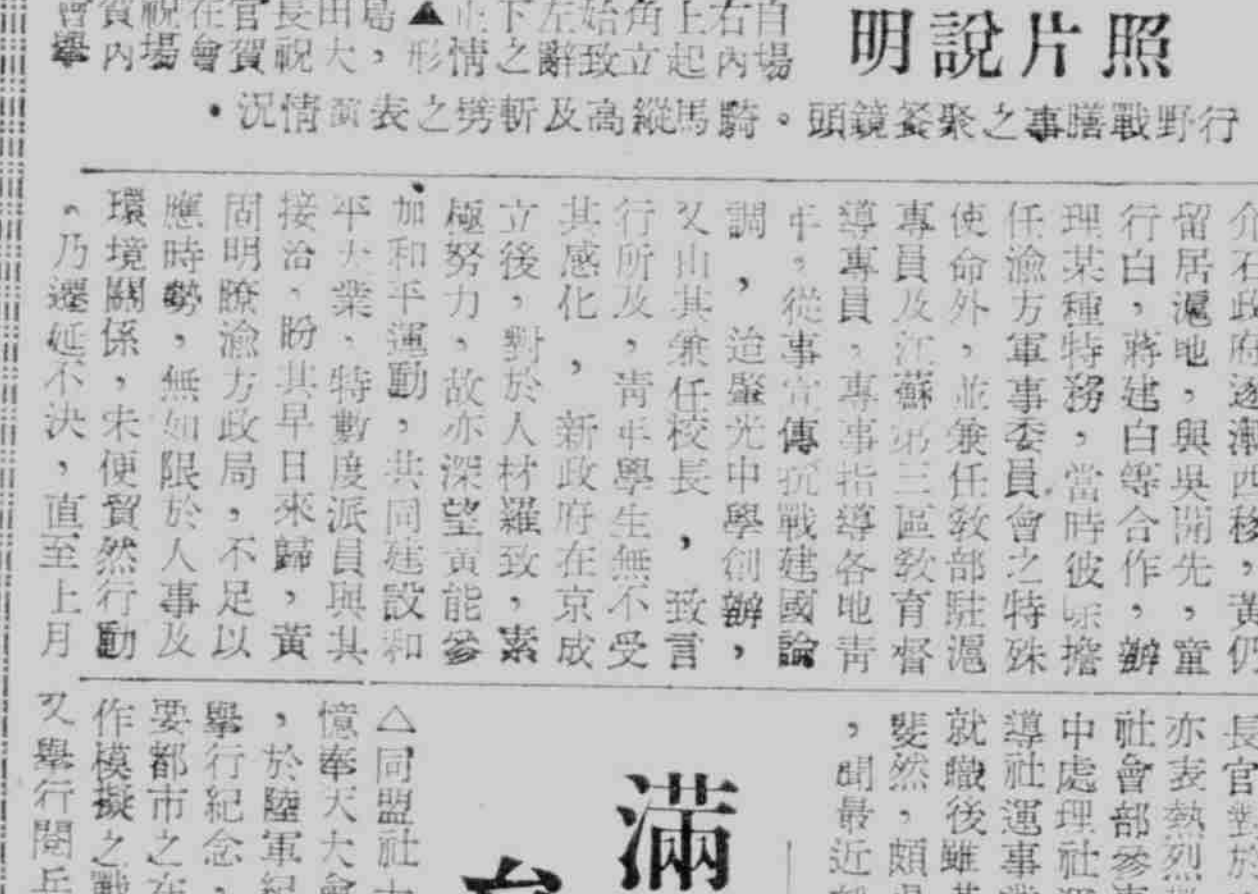 照片說明
自右上角始左下止▲島田長官在祝賀會
場內起立致辭之情形，大祝賀會場內舉
行野戰膳事之聚餐鏡頭。騎馬縱高及斬劈之表演情況．
介石政府逐漸西移，黃仍
留居滬地，與吳開先，童
行白，蔣建白等合作，辦
理某種特務，當時彼除擔
任渝方軍事委員會之特殊
使命外，並兼任敎部駐滬
專員及江蘇第三區敎育督
導專員，專事指導各地靑
年，從事宣傳抗戰建國論
調，迨肇光中學創辦，
又由其兼任校長，致言
行所及，靑年學生無不受
其感化，新政府在京成
立後，對於人材羅致，素
極努力，故亦深望黃能參
加和平運動，共同建設和
平大業，特數度派員與其
接洽，盼其早日來歸，黃
固明瞭渝方政局，不足以
應時勢，無如限於人事及
環境關係，未便貿然行動
，乃遷延不決，直至上月
長官對於
亦表熱烈
社會部參
中處理社
導社運事業
就職後雖
斐然，頗
，聞最近
滿
△同盟社
憶奉天大會
，於陸軍紀
舉行紀念，
要都市之在
作模擬之戰
又舉行閱兵